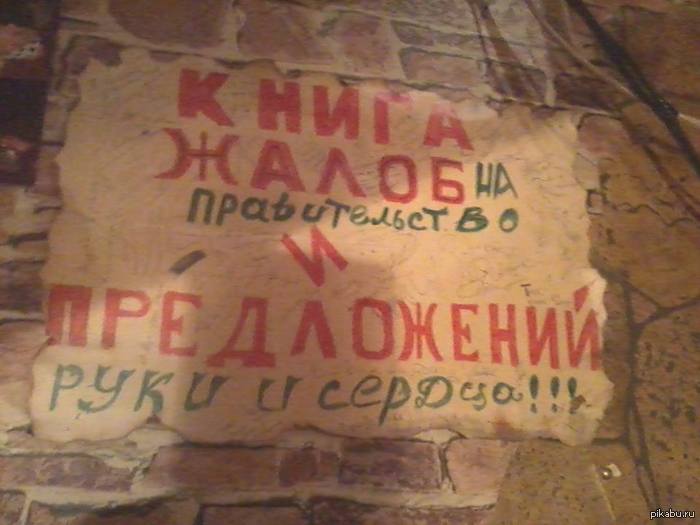 КНИГА
ЖАЛОБ НА
правительство
И
ПРЕДЛОЖЕНИЙ
руки и сердца!!!
pikabu.ru